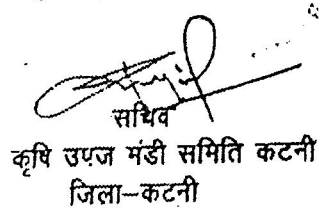 सचिव
कृषि उपज मंडी समिति कटनी
जिला-कटनी